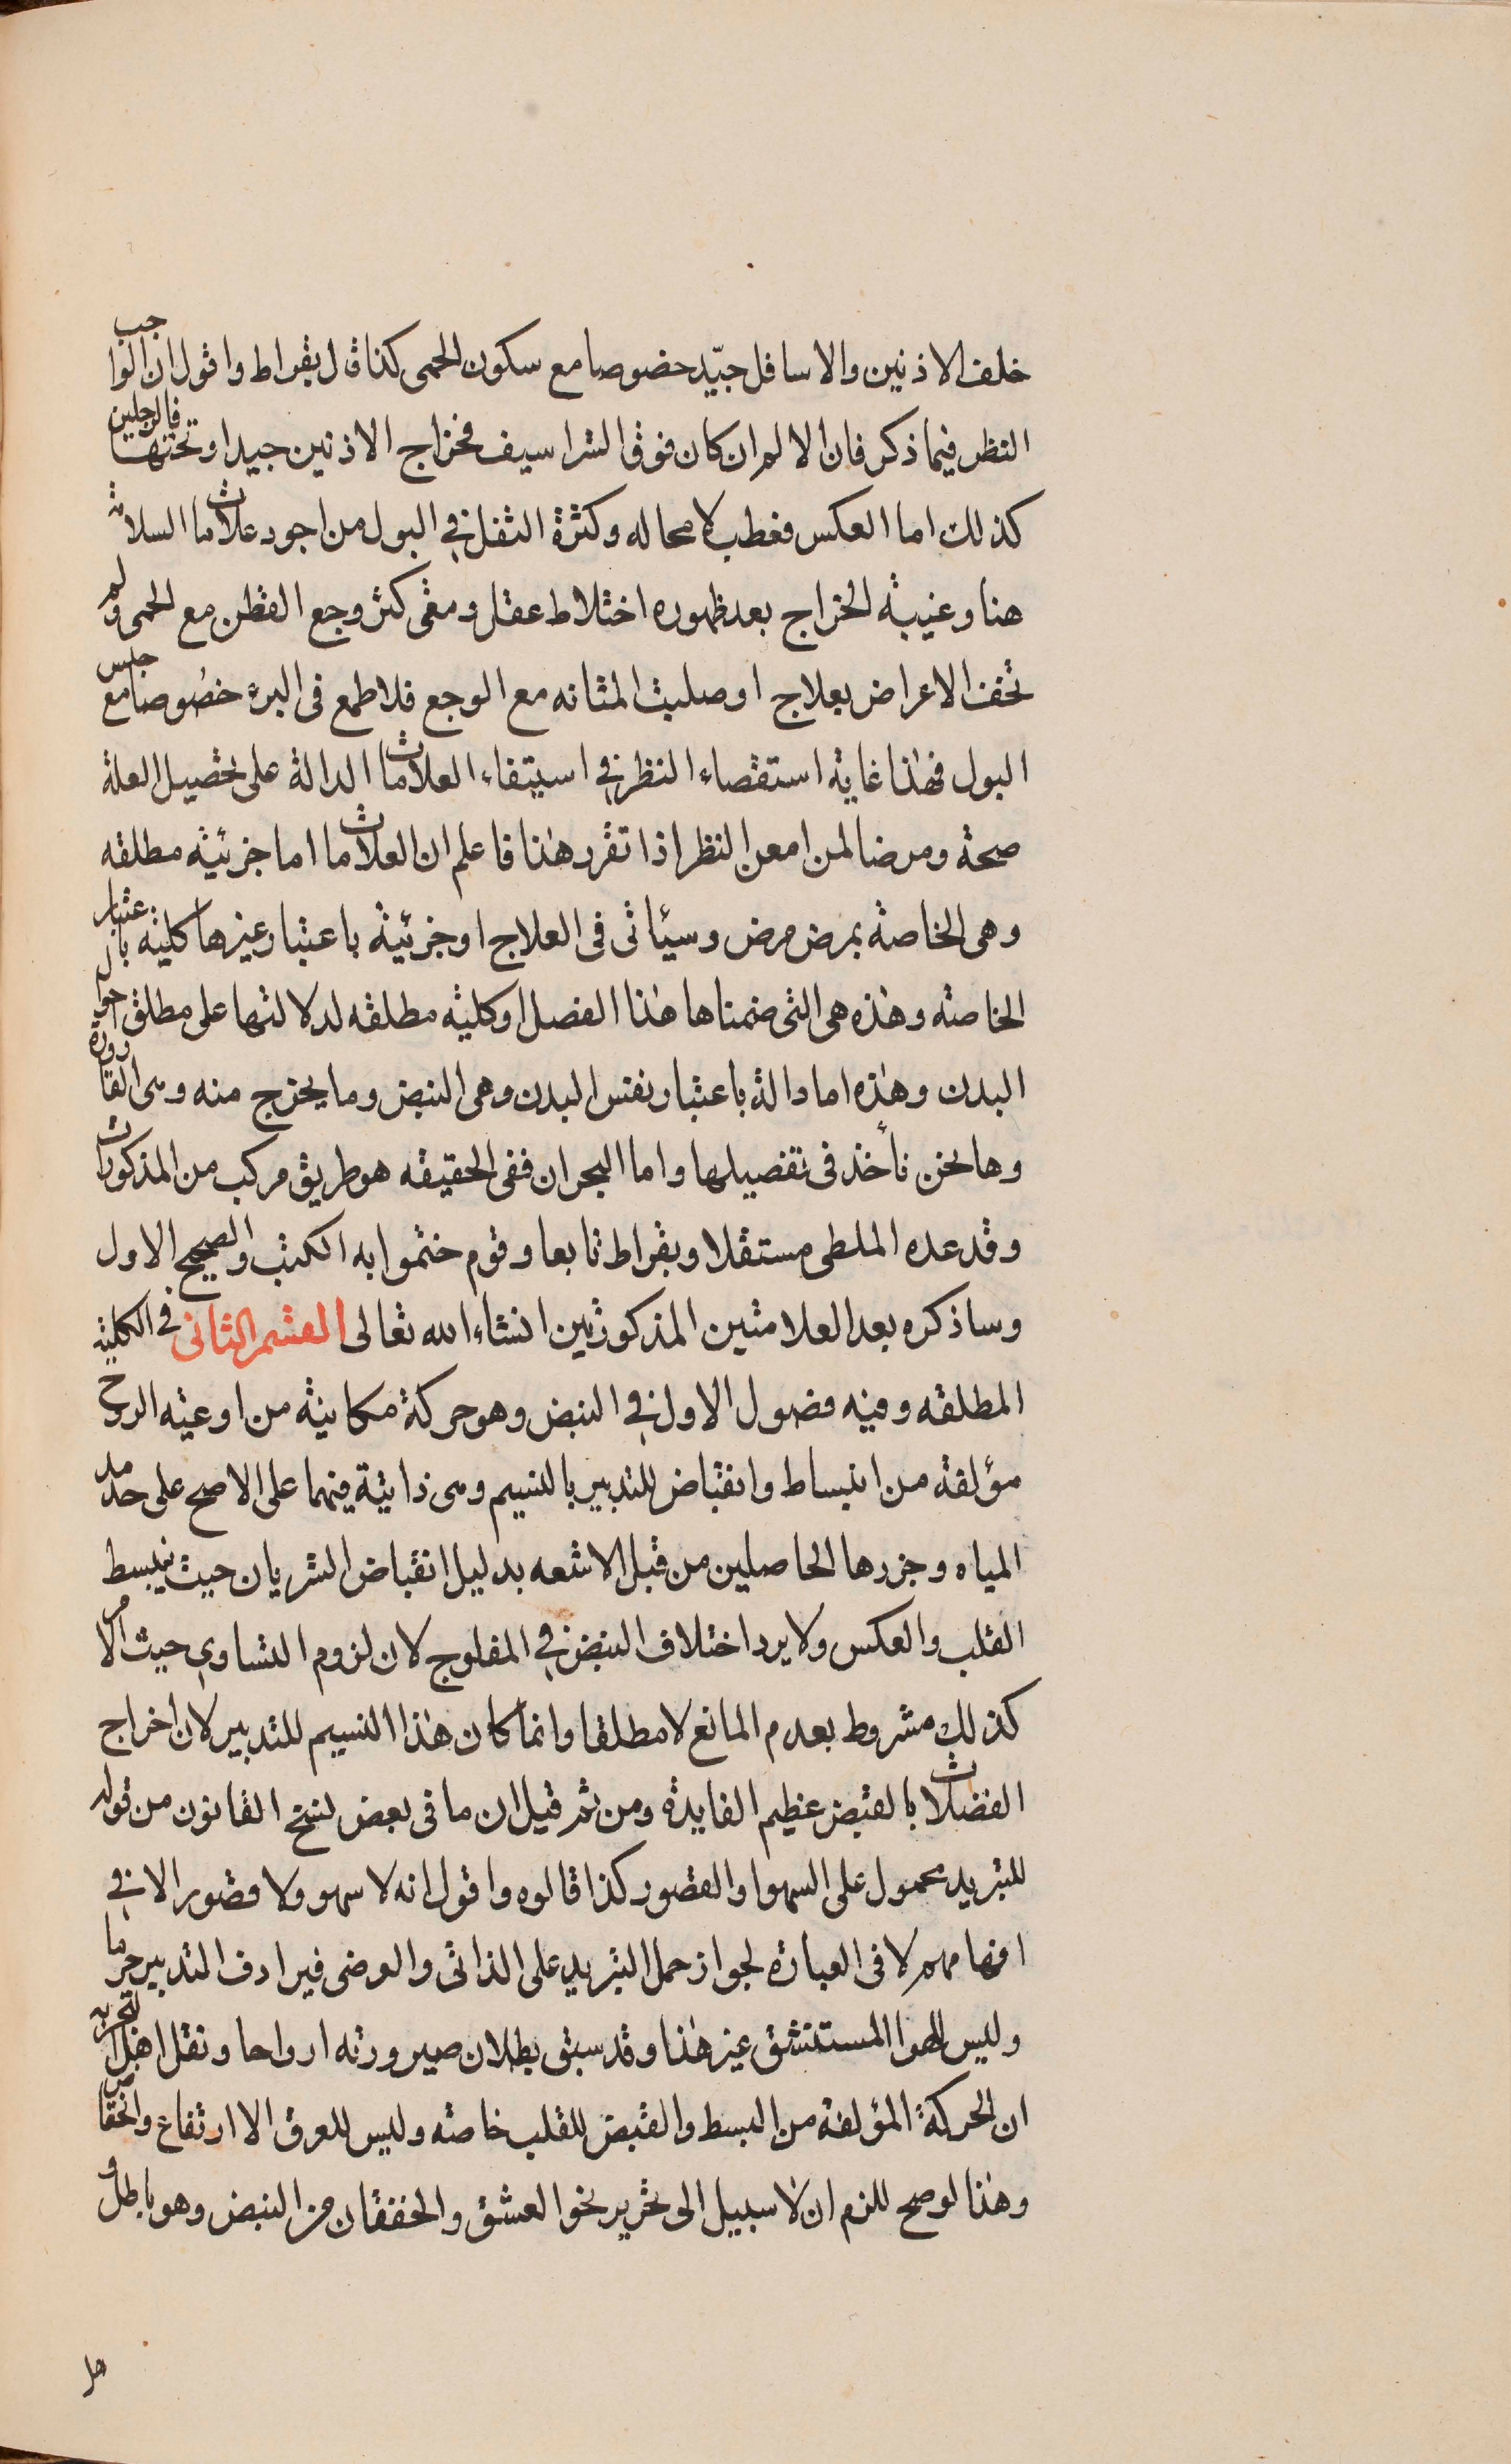 خلف الاذنين والاسافل جيّد خصوصا مع سكون الحمى كذا قال بقراط واقول ان الواجب
النظر فيما ذكر فان الالم ان كان فوق الشراسيف فخراج الاذنين جيد او تحتها فالرجلين
كذلك اما العكس فعطب لا محاله وكثرة الثفل في البول من اجود علامات السلامة
هنا وغيبة الخراج بعد ظهوره اختلاط عقل ومتى كثر وجع القطن مع الحمى ولم
تخف الاعراض بعلاج او صلبت المثانه مع الوجع فلا طمع فى البرء خصوصا مع حبس
البول فهذا غاية استقصاء النظر في استيفاء العلامات الدالة على تحصيل العلة
صحة ومرضا لمن امعن النظر اذا تقرر هذا فاعلم ان العلامات اما جزئية مطلقه
وهى الخاصة بمرض مرض وسيأتى فى العلاج او جزئية باعتبار غيرها كلية باعتبار
الخاصة وهذه هى التى ضمناها هذا الفصل او كلية مطلقه لدلالتها على مطلق احوال
البدن وهذه اما دالة باعتبار نفس البدن وهى النبض وما يخرج منه وهى القارورة
وها نحن نأخذ فى تفصيلها واما البحران ففى الحقيقه هو طريق مركب من المذكورات
وقد عده الملطى مستقلا وبقراط تابعا وقوم ختموا به الكتب والصحيح الاول
وساذكره بعد العلامتين المذكورتين انشاء الله تعالى القسم الثانى في الكلية
المطلقه وفيه فصول الاول في النبض وهو حركة مكانية من اوعية الروح
مؤلفة من انبساط وانقباض للتدبير بالنسيم وهى ذاتية فيهما على الاصح على حد مد
المياه وجزرها الحاصلين من قبل الاشعه بدليل انقباض الشريان حيث ينبسط
القلب والعكس ولا يرد اختلاف النبض في المفلوج لان لزوم التساوي حيث الامر
كذلك مشروط بعدم المانع لا مطلقا وانما كان هذا النسيم للتدبير لان اخراج
الفضلات بالقبض عظيم الفايدة ومن ثم قيل ان ما فى بعض نسخ القانون من قوله
للتبريد محمول على السهو والقصور كذا قالوه واقول انه لا سهو ولا قصور الا في
افهامهم لا فى العبارة لجواز حمل التبريد على الذاتى والعرضى فيرادف التدبير جزما
وليس للهوا المستنشق غير هذا وقد سبق بطلان صيرورته ارواحا ونقل اهل التجربه
ان الحركة المؤلفة من البسط والقبض للقلب خاصة وليس للعرق الا ارتفاع وانخفاض
وهذا لو صح للزم ان لا سبيل الى تحرير نحو العشق والخفقان من النبض وهو باطل و